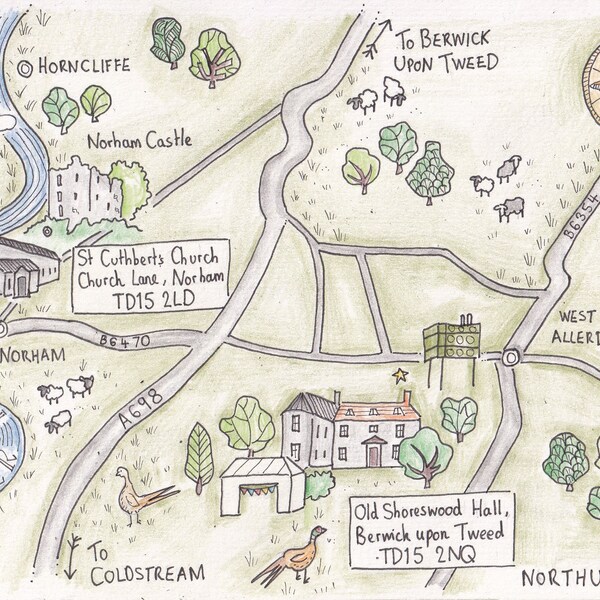 To BERWICK
UPON TWEED
HORNCLIFFE
Norham Castle
B6354
St Cuthbert's Church
Church Lane, Norham
TD15 2LD
WEST
ALLERD
B6470
NORHAM
A698
Old Shoreswood Hall,
Berwick upon Tweed
TD15 2NQ
To
COLDSTREAM
NORTHU